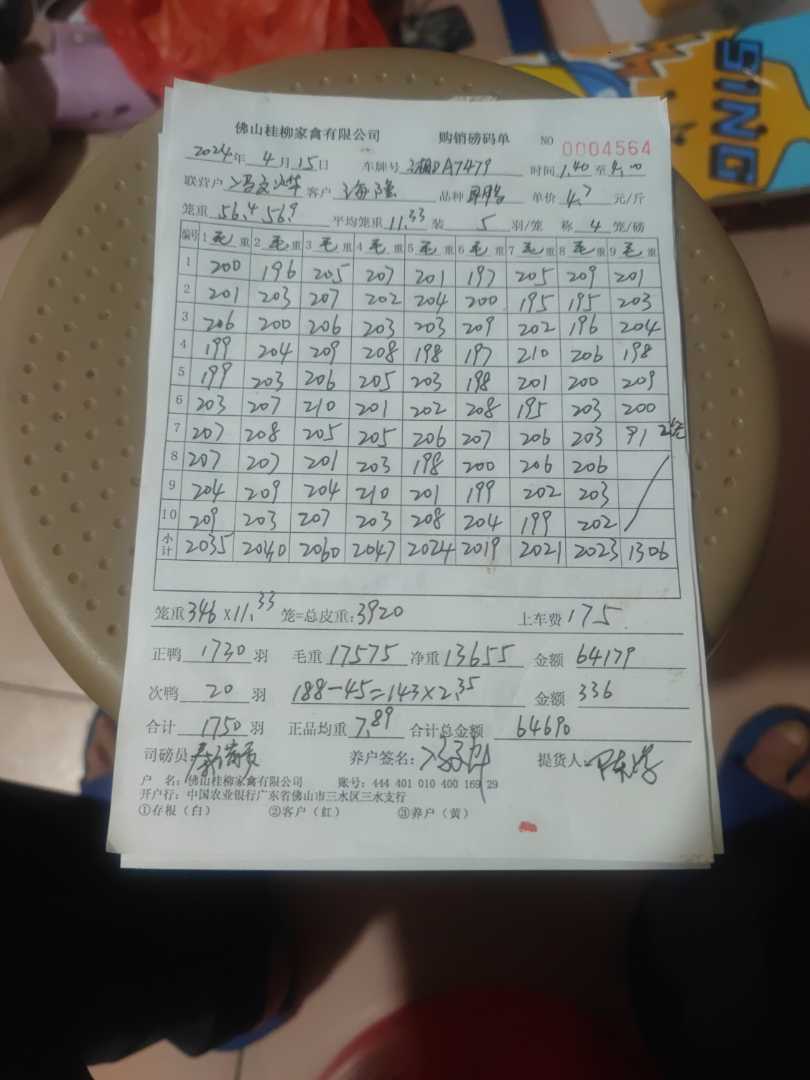 SING
佛山桂柳家禽有限公司 购销磅码单 NO 0004564
2024年4月15日 车牌号 湘DA7479 时间1.40至4.00
联营户 客户 海隆 品种 单价 4.7 元/斤
笼重 56.4 56.9 平均笼重 11.33 装 5 羽/笼 称 4 笼/磅
编号 1 毛 重 2 毛 重 3 毛 重 4 毛 重 5 毛 重 6 毛 重 7 毛 重 8 毛 重 9 毛 重
1 200 196 205 207 201 197 205 209 201
2 201 203 207 202 204 200 195 195 203
3 206 200 206 203 203 209 202 196 204
4 199 204 209 208 198 197 210 206 198
5 199 203 206 205 203 198 201 200 209
6 203 207 210 201 202 208 195 203 200
7 207 208 205 205 206 207 206 203 91 2笼
8 207 207 201 203 198 200 206 206
9 204 209 204 210 201 199 202 203
10 209 203 207 203 208 204 199 202
小计 2035 2040 2060 2047 2024 2019 2021 2023 1306
笼重346×11.33 笼=总皮重:3920 上车费 175
正鸭 1730 羽 毛重 17575 净重 13655 金额 64179
次鸭 20 羽 188-45=143×2.35 金额 336
合计 1750 羽 正品均重 7.89 合计总金额 64690
司磅员 养户签名: 提货人
户 名:佛山桂柳家禽有限公司 账号:444 401 010 400 169 29
开户行:中国农业银行广东省佛山市三水区三水支行
①存根(白) ②客户(红) ③养户(黄)